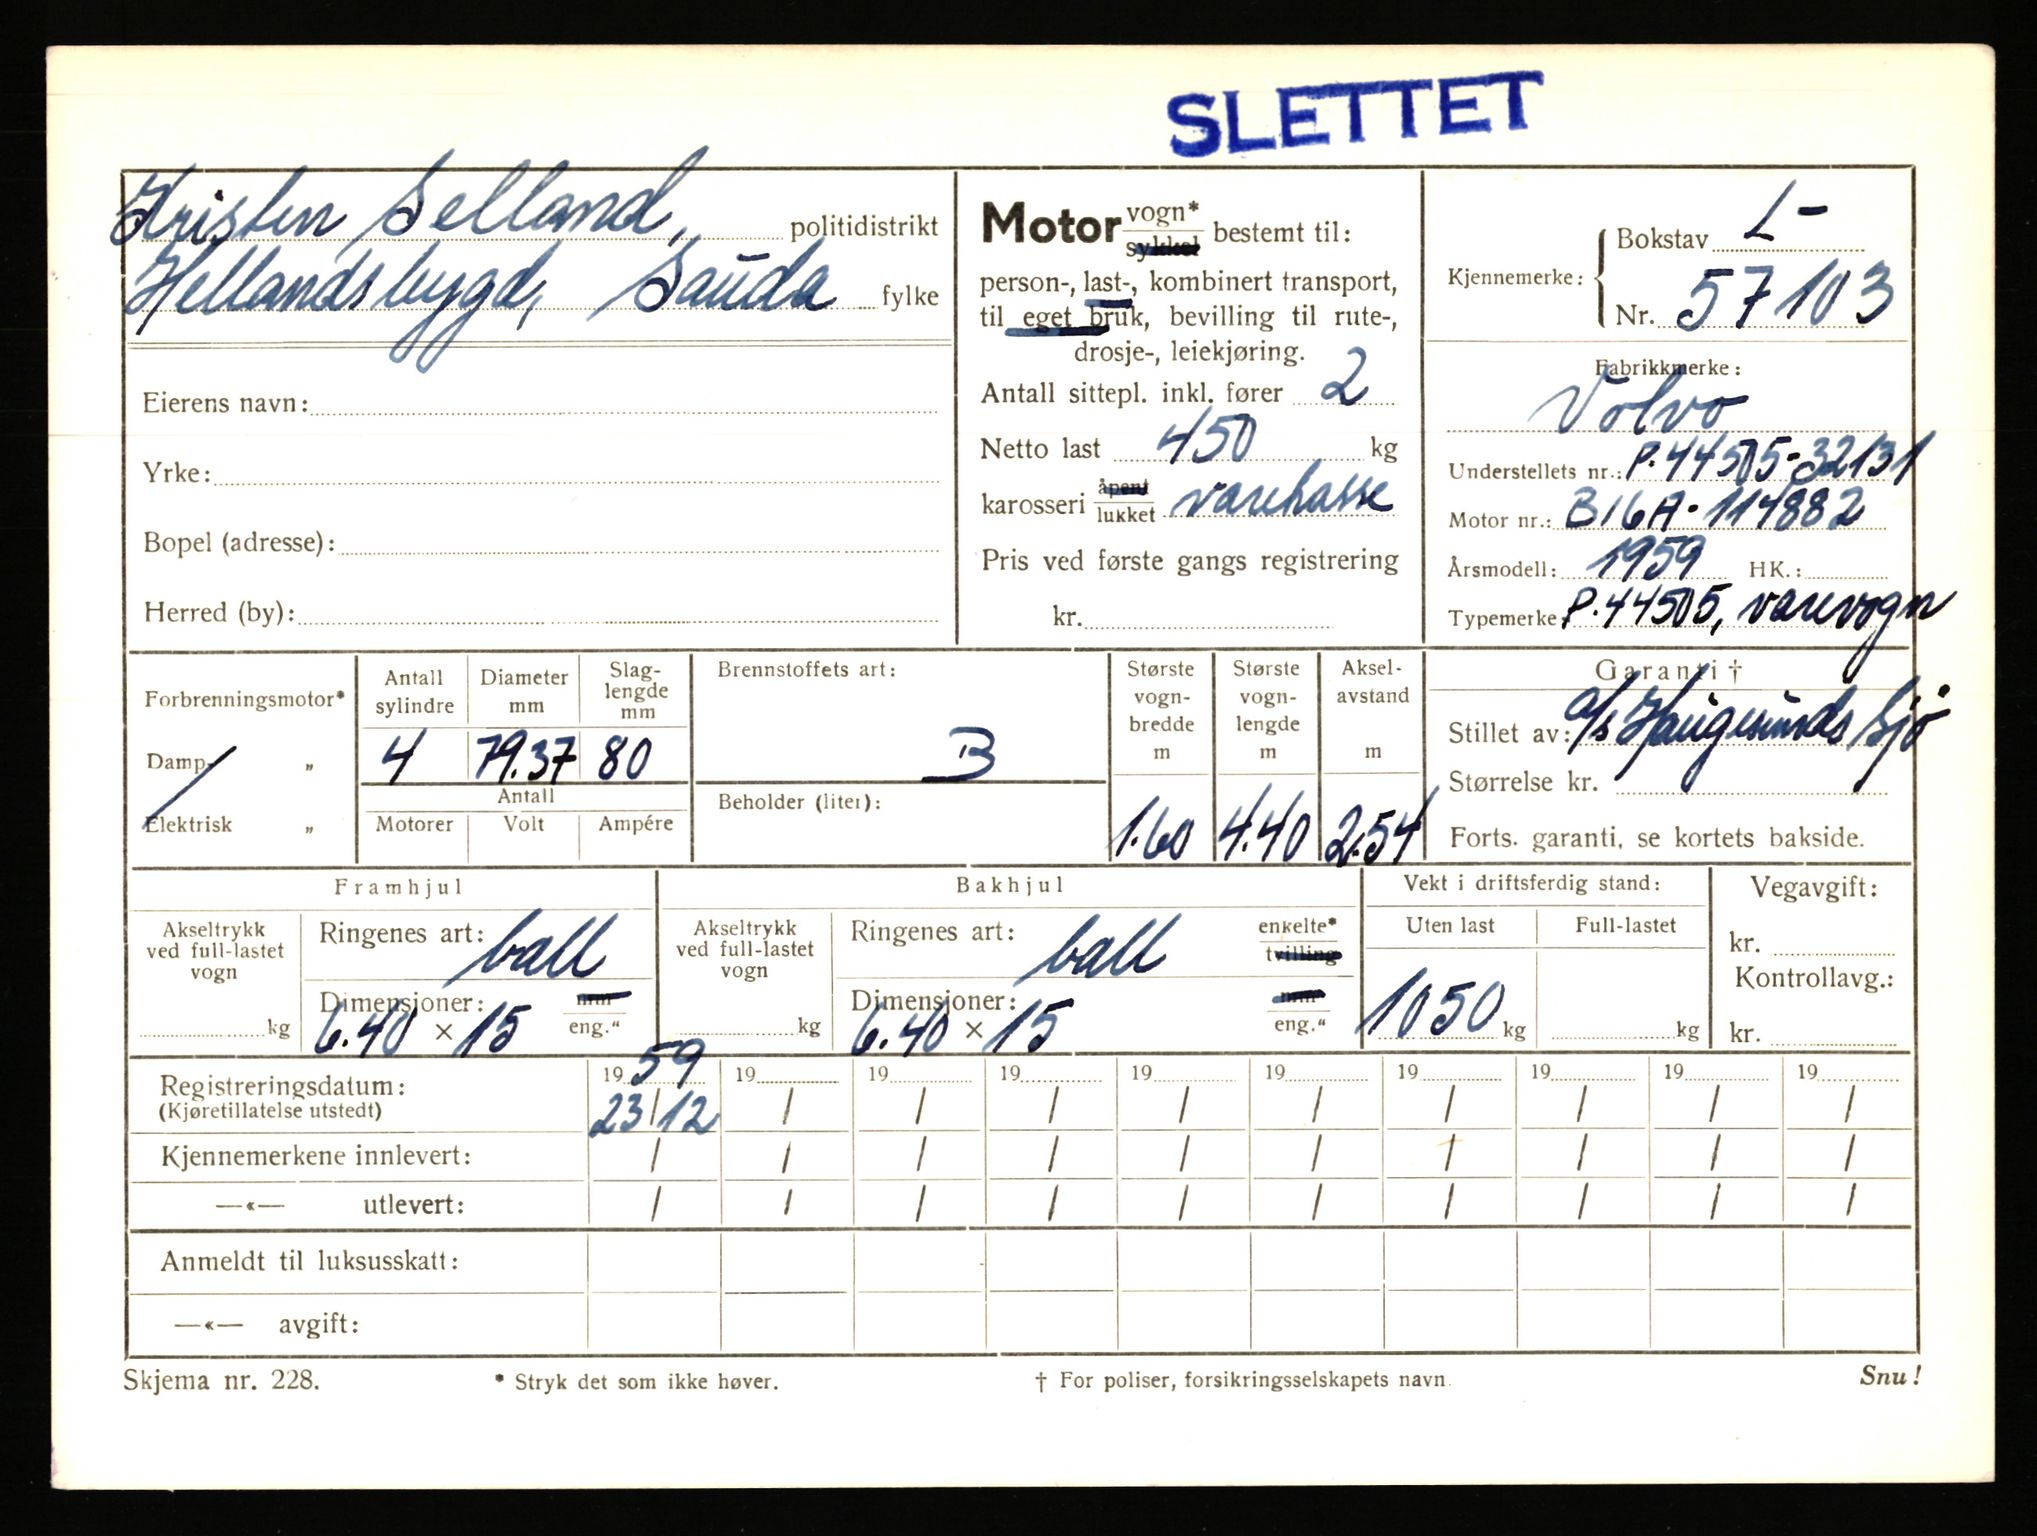 SLETTET
Kristen Selland, politidistrikt
Hellandsbygd, Sauda fylke
Eierens navn:
Yrke:
Bopel (adresse):
Herred (by):
Motor vogn* sykkel bestemt til:
person-, last-, kombinert transport,
til eget bruk, bevilling til rute-,
drosje-, leiekjøring.
Antall sittepl. inkl. fører 2
Netto last 450 kg
karosseri åpent lukket varekasse
Pris ved første gangs registrering
kr.
Kjennemerke: Bokstav L-
Nr. 57103
Fabrikkmerke:
Volvo
Understellets nr.: P.44505-32131
Motor nr.: B16A-114882
Årsmodell: 1959 HK.:
Typemerke P.44505, varevogn
Forbrenningsmotor*
Damp- „
Elektrisk „
Antall sylindre Diameter mm Slag-lengde mm
4 79.37 80
Antall
Motorer Volt Ampére
Brennstoffets art:
B
Beholder (liter):
Største vogn-bredde m
1.60
Største vogn-lengde m
4.40
Aksel-avstand m
2.54
Garanti †
Stillet av: a/s Haugesunds Sjø
Størrelse kr.
Forts. garanti, se kortets bakside.
Framhjul
Akseltrykk ved full-lastet vogn
kg
Ringenes art: ball
Dimensjoner: mm
6.40 × 15 eng."
Bakhjul
Akseltrykk ved full-lastet vogn
kg
Ringenes art: ball enkelte* tvilling
Dimensjoner: mm
6.40 × 15 eng."
Vekt i driftsferdig stand:
Uten last Full-lastet
1050 kg kg
Vegavgift:
kr.
Kontrollavg.:
kr.
Registreringsdatum: 19 59 19 19 19 19 19 19 19 19 19
(Kjøretillatelse utstedt) 23/12 / / / / / / / / /
Kjennemerkene innlevert: / / / / / / / / / /
—«— utlevert: / / / / / / / / / /
Anmeldt til luksusskatt:
—«— avgift:
Skjema nr. 228. * Stryk det som ikke høver. † For poliser, forsikringsselskapets navn. Snu!